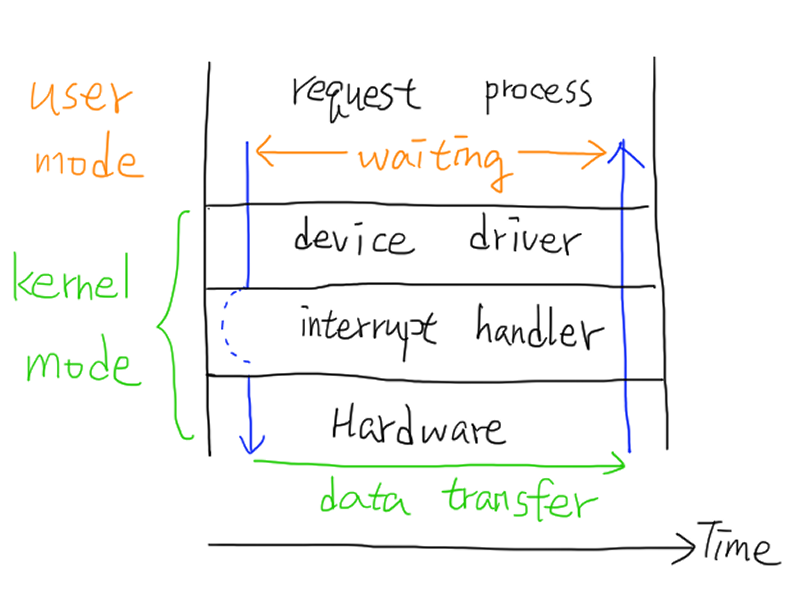 user
mode
request process
waiting
kernel
mode
device driver
interrupt handler
Hardware
data transfer
Time